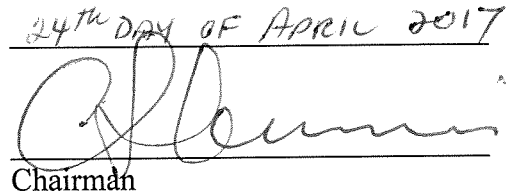 24th DAY OF APRIL 2017
Chairman